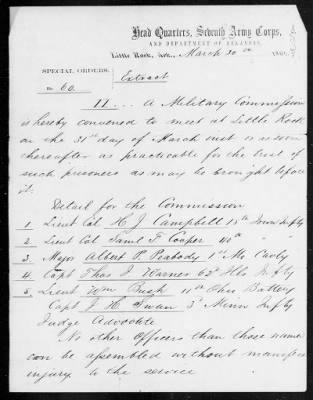 Head Quarters, Seventh Army Corps,
AND DEPARTMENT OF ARKANSAS,
Little Rock, Ark., March 30th 186
SPECIAL ORDERS, Extract
No 60.
II... A Military Commission
is hereby convened to meet at Little Rock
on the 31st day of March inst or as soon
thereafter as practicable for the trial of
such prisoners as may be brought before
it.
Detail for the Commission
1. Lieut Col H. J. Campbell 18th Iowa Infty
2. Lieut Col Saml F. Cooper 40th " "
3. Major Albert P. Peabody 1st Mo Cavly
4. Capt Thos J Warner 62d Ills Infty
5. Lieut Wm Bush 11th Ohio Battery
Capt J. H. Swan 3d Minn Infty
Judge Advocate
No other officers than those named
can be assembled without manifest
injury to the service